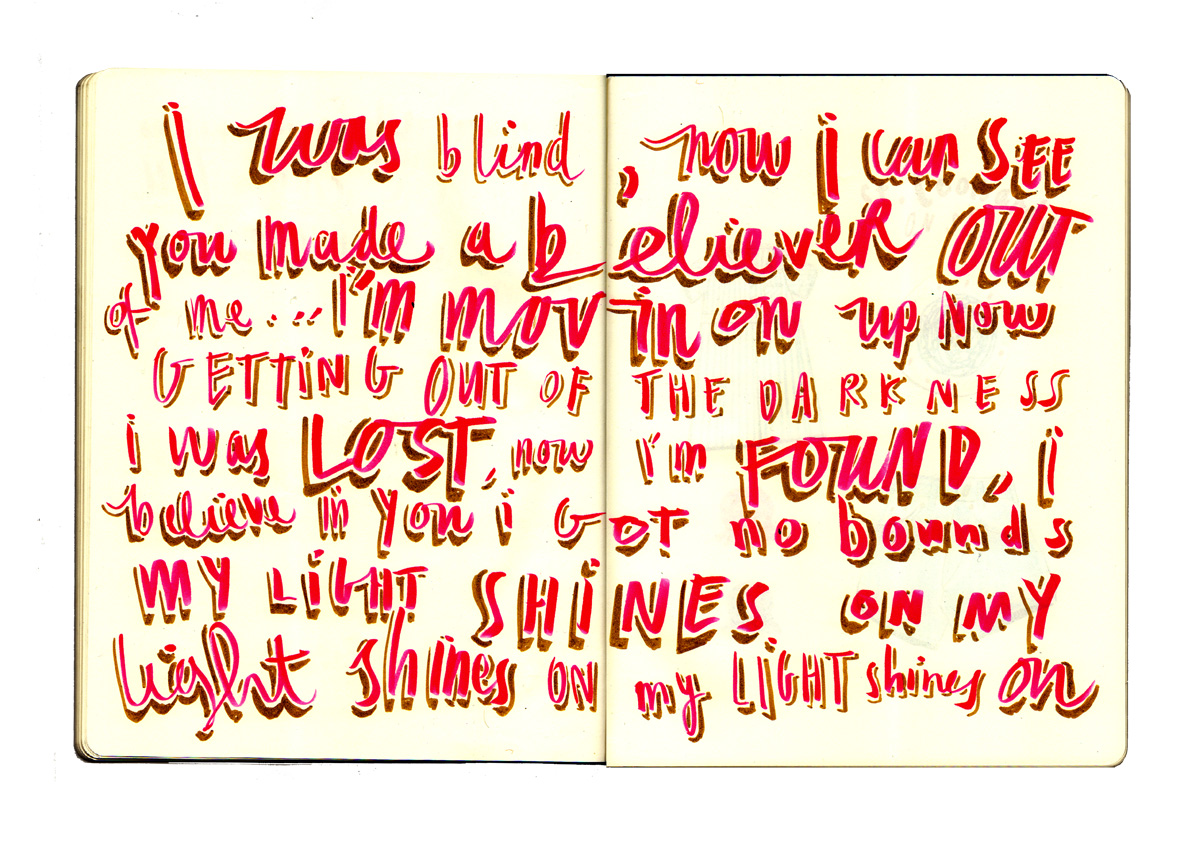 i was blind, now i can SEE
you made a believER OUT
of me... I'm movin on up Now
GETTiNG OUT OF THE DARKNESS
i was LOST, now i'm FOUND, i
believe in you i GOT no bounds
MY LiGHT SHiNES ON MY
light shines ON my LiGHT shines on